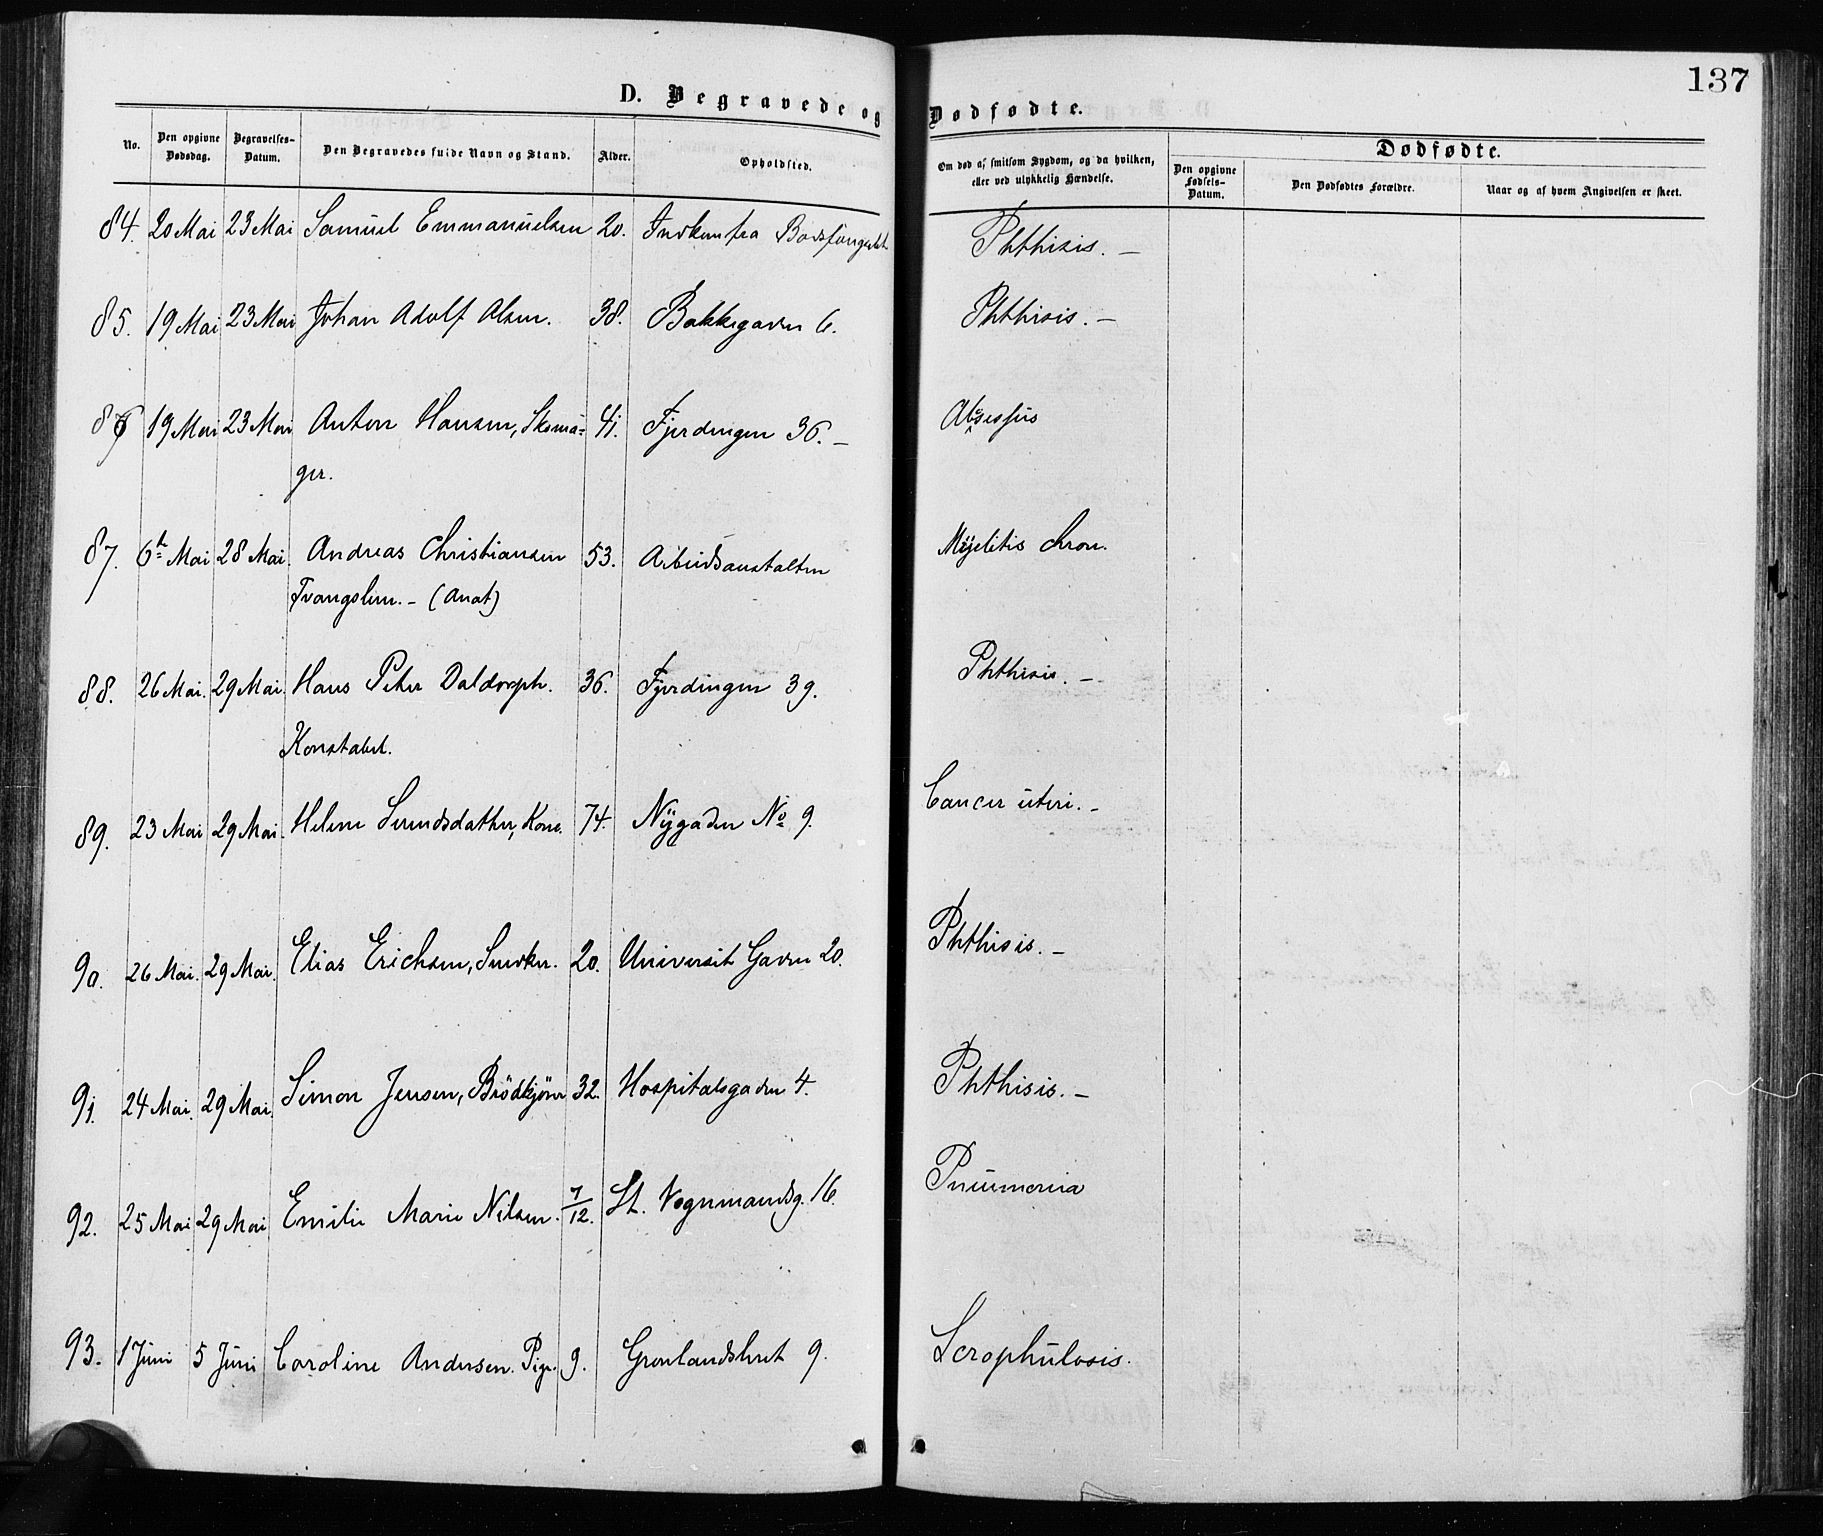 137
D. Begravede og Dødfødte.
No. | Den opgivne Dødsdag. | Begravelses-Datum. | Den Begravedes fulde Navn og Stand. | Alder. | Opholdsted. | Om død af smitsom Sygdom, og da hvilken, eller ved ulykkelig Hændelse. | Dødfødte. | Den opgivne Fødsels-Datum. | Den Dødfødtes Forældre. | Naar og af hvem Angivelsen er skeet.
84. 20 Mai 23 Mai Samuel Emmanuelsen 20. Indkom fra Bodsfængslet Phthisis. –
85. 19 Mai 23 Mai Johan Adolf Olsen. 38. Bakkegaden 6. Phthisis. –
86 19 Mai 23 Mai Anton Hansen, Skoma= 41. Fjerdingen 36. – Abscessus
ger.
87. 6te Mai 28 Mai. Andreas Christiansen 53. Arbeidsanstalten Myelitis chron.
Tvangslem. – (Anat)
88. 26 Mai. 29 Mai. Hans Peter Daldorph. 36. Fjerdingen 39. Phthisis. –
Konstabel.
89. 23 Mai 29 Mai. Helene Svendsdatter, Kone. 74. Nygaden No 9. Cancer uteri. –
90. 26 Mai. 29 Mai. Elias Erichsen, Snedker. 20. Universit Gaden 20. Phthisis. –
91. 24 Mai. 29 Mai. Simon Jensen, Brödkjörer 32. Hospitalsgaden 4. Phthisis. –
92. 25 Mai 29 Mai Emilie Marie Nilsen. 7/12. St. Vognmandsg. 16. Pneumonia
93. 1 Juni 5 Juni Caroline Andersen. Pige. 9. Grønlandsleret 9. Scrophulosis.